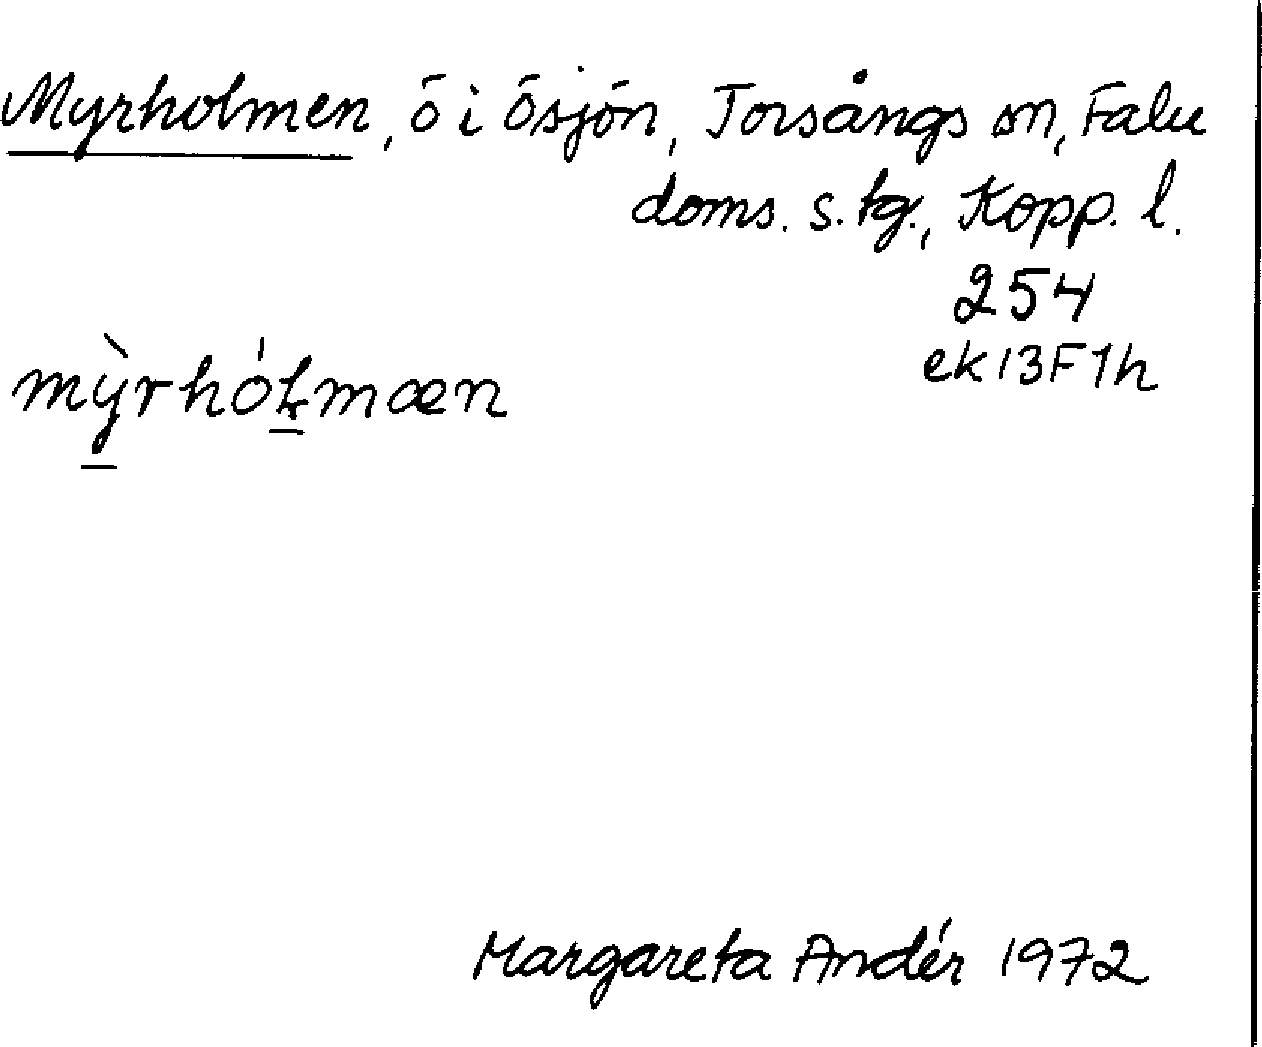 Myrholmen, ö i Ösjön, Torsångs sn, Falu
doms. s. tg., Kopp. l.
254
ek 13F1h
mỳrhóļmæn
Margareta Andér 1972